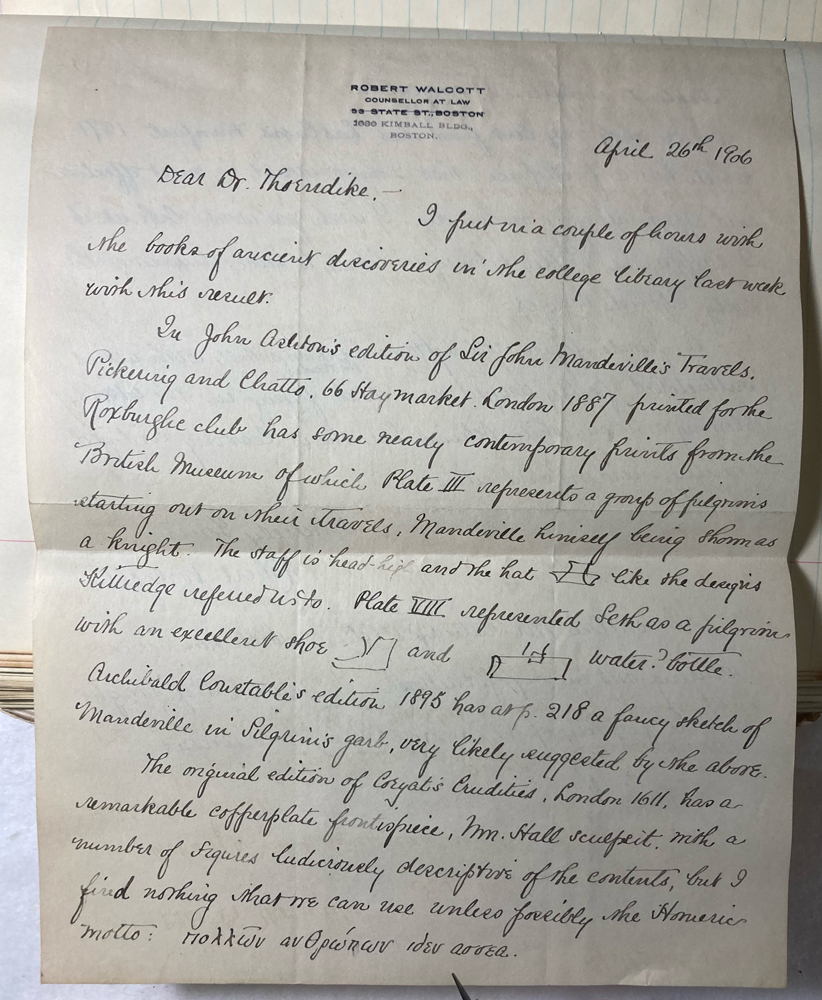 ROBERT WALCOTT
COUNSELLOR AT LAW
53 STATE ST., BOSTON
1080 KIMBALL BLDG.,
BOSTON.
April 26th 1906
Dear Dr. Thorndike, —
I put in a couple of hours with
the books of ancient discoveries in the college library last week
with this result.
In John Ashton's edition of Sir John Mandeville's Travels.
Pickering and Chatto. 66 Haymarket. London 1887 printed for the
Roxburghe club has some nearly contemporary prints from the
British Museum of which Plate III represents a group of pilgrims
starting out on their travels, Mandeville himself being shown as
a knight. The staff is head-high and the hat like the designs
Kittredge referred us to. Plate VIII represented Seth as a pilgrim
with an excellent shoe and water? bottle.
Archibald Constable's edition 1895 has at p. 218 a fancy sketch of
Mandeville in Pilgrim's garb, very likely suggested by the above.
The original edition of Coryat's Crudities, London 1611, has a
remarkable copperplate frontispiece, Wm. Hall sculpsit, with a
number of figures ludicrously descriptive of the contents, but I
find nothing that we can use unless possibly the Homeric
motto: πολλῶν ανθρώπων ιδεν αστεα.